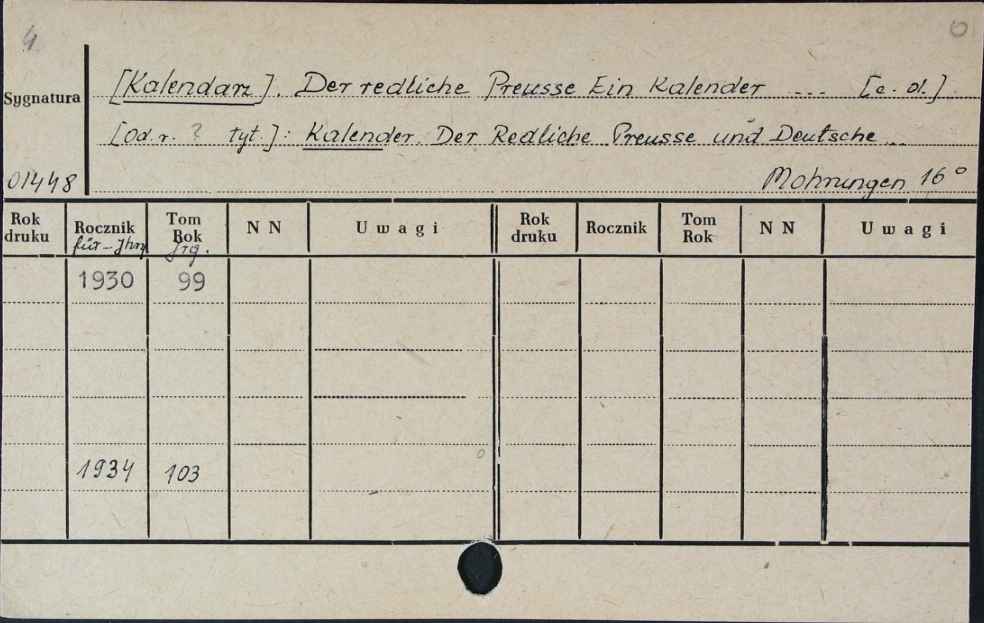 4
Sygnatura
[Kalendarz]. Der redliche Preusse Ein Kalender ... [e. d.]
[Od. r. ? tyt.]: Kalender. Der Redliche Preusse und Deutsche...
01448 Mohrungen 16°
Rok druku Rocznik Tom Rok NN Uwagi Rok druku Rocznik Tom Rok NN Uwagi
für Jhrg.
1930 99
1934 103